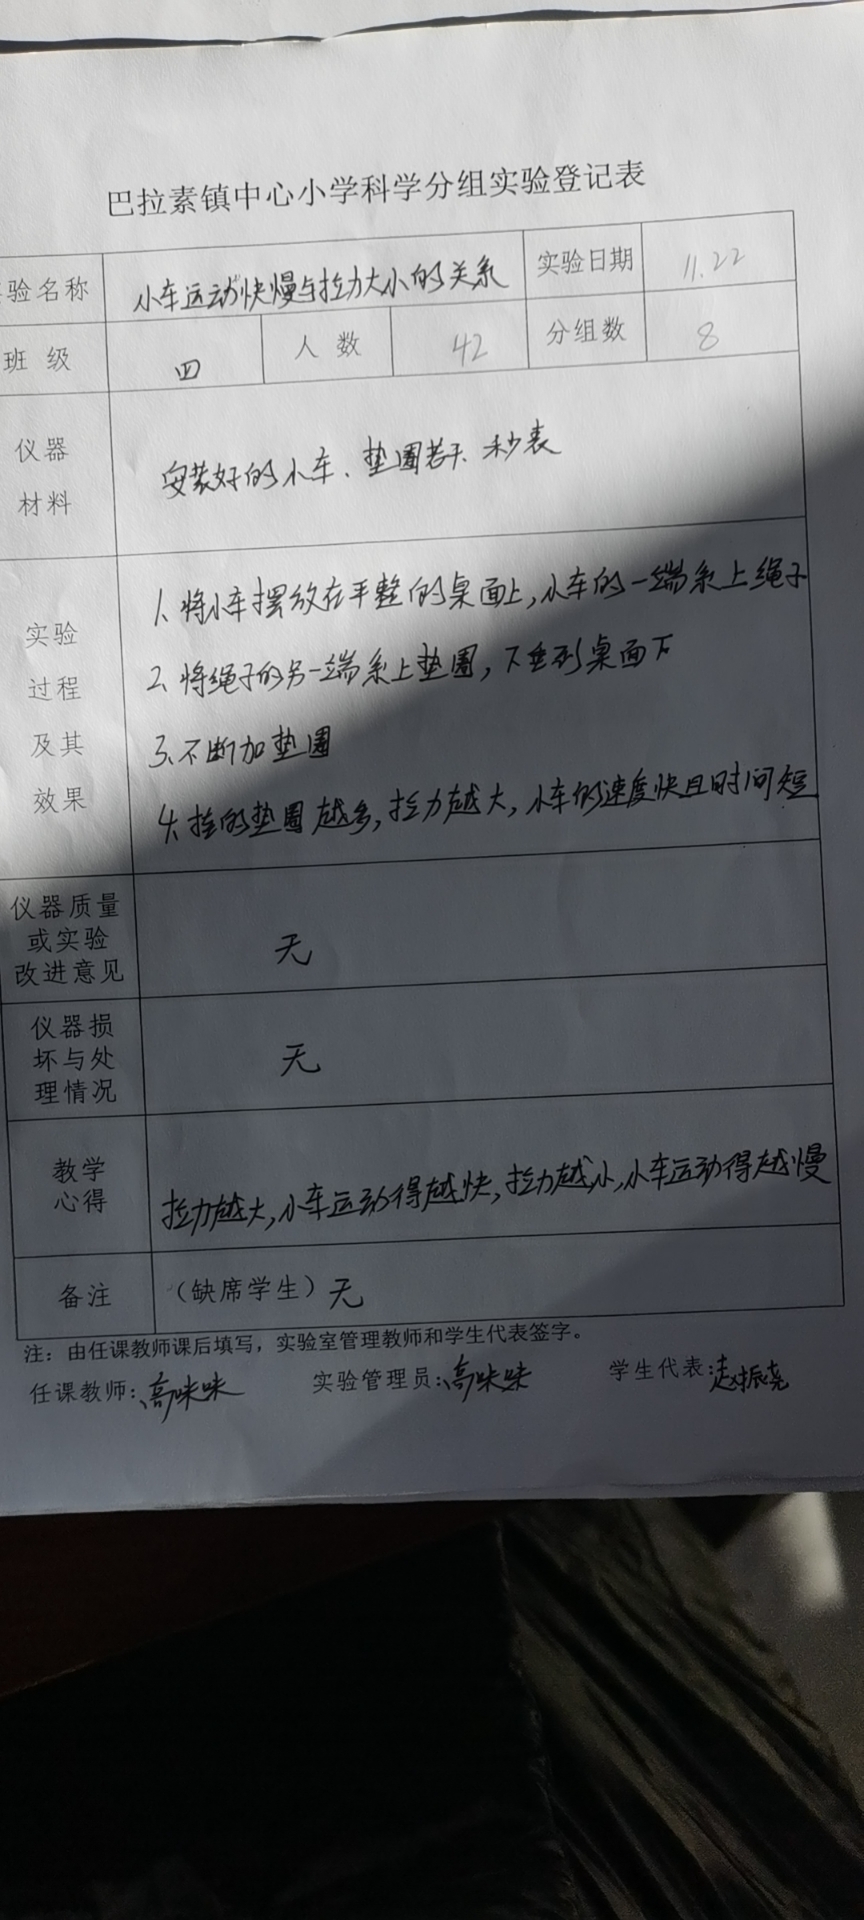 巴拉素镇中心小学科学分组实验登记表
验名称 小车运动快慢与拉力大小的关系 实验日期 11.22
班 级 四 人 数 42 分组数 8
仪器
材料
安装好的小车、垫圈若干、秒表
实验
过程
及其
效果
1、将小车摆放在平整的桌面上,小车的一端系上绳子
2、将绳子的另一端系上垫圈,下垂到桌面下
3、不断加垫圈
4、挂的垫圈越多,拉力越大,小车的速度快且时间短
仪器质量
或实验
改进意见
无
仪器损
坏与处
理情况
无
教学
心得
拉力越大,小车运动得越快,拉力越小,小车运动得越慢
备注 (缺席学生)无
注:由任课教师课后填写,实验室管理教师和学生代表签字。
任课教师:高咪咪 实验管理员:高咪咪 学生代表:赵振尧